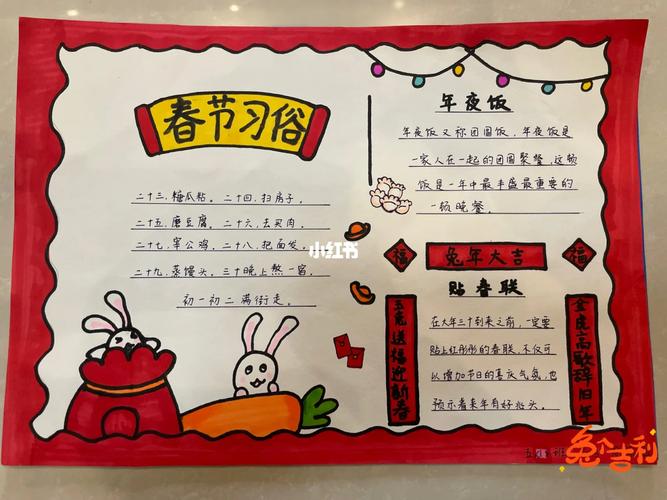 春节习俗
二十三.糖瓜粘。二十四.扫房子。
二十五.磨豆腐。二十六.去买肉。
二十七.宰公鸡。二十八.把面发。
二十九.蒸馒头。三十晚上熬一宿。
初一初二满街走。
年夜饭
年夜饭又称团圆饭，年夜饭是
一家人在一起的团圆聚餐，这顿
饭是一年中最丰盛最重要的
一顿晚餐。
小红书
福
兔年大吉
福
贴春联
玉兔送福迎新春
金虎高歌辞旧年
在大年三十到来之前，一定要
贴上红彤彤的春联，不仅可
以增加节日的喜庆气氛，也
预示着来年有好兆头。
兔个吉利